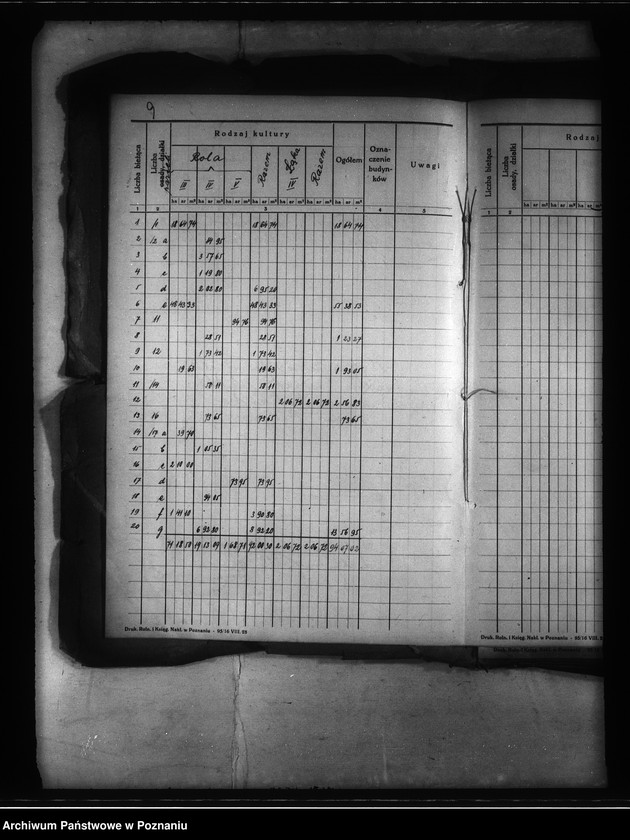 9
Rodzaj kultury
Rodzaj
Liczba bieżąca
Liczba osady, działki
Rola
Łąka
III IV V Razem IV Razem
Ogółem
Ozna-
czenie
budyn-
ków
Uwagi
Liczba bieżąca
Liczba osady, działki
ha ar m² ha ar m² ha ar m² ha ar m² ha ar m² ha ar m² ha ar m²
1 2 3 4 5
1 2
1 18 64 74 18 64 74 18 64 74
2 /2 a 14 95
3 b 3 57 65
4 c 1 19 80
5 d 2 02 80 6 95 20
6 e 48 43 33 48 43 33 55 38 53
7 11 94 76 94 76
8 28 51 28 51 1 23 27
9 12 1 73 42 1 73 42
10 19 63 19 63 1 93 05
11 /14 58 11 58 11
12 2 06 72 2 06 72 2 56 83
13 16 73 65 73 65 73 65
14 /17 a 39 70
15 b 1 05 35
16 c 2 10 00
17 d 73 95 73 95
18 e 94 05
19 f 1 41 10 3 90 80
20 g 6 92 20 8 92 20 13 56 95
71 18 50 19 13 09 1 68 71 92 00 30 2 06 72 2 06 72 94 07 02
Druk. Roln. i Księg. Nakł. w Poznaniu
Druk. Roln. i Księg. Nakł. w Poznaniu
Archiwum Państwowe w Poznaniu